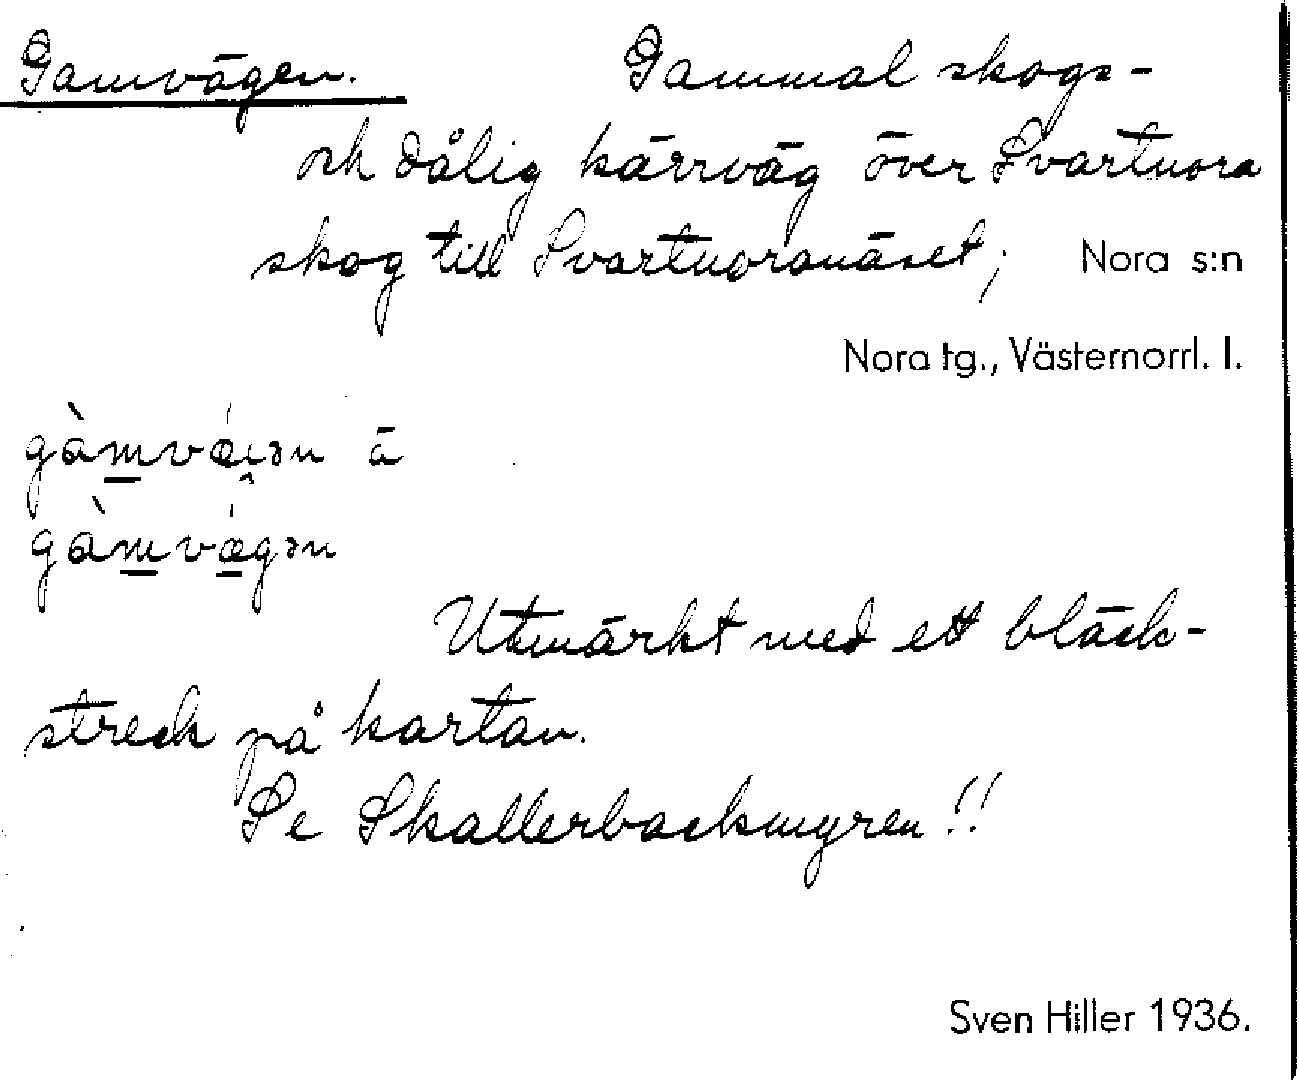 Gamvägen. Gammal skogs-
och dålig kärrväg över Svartnora
skog till Svartnoranäset; Nora s:n
Nora tg., Västernorrl. l.
gàmvǽı̯ən ä
gàm̲vǽ̲gən
Utmärkt med ett bläck-
streck på kartan.
Se Skallerbackmyren!!
Sven Hiller 1936.